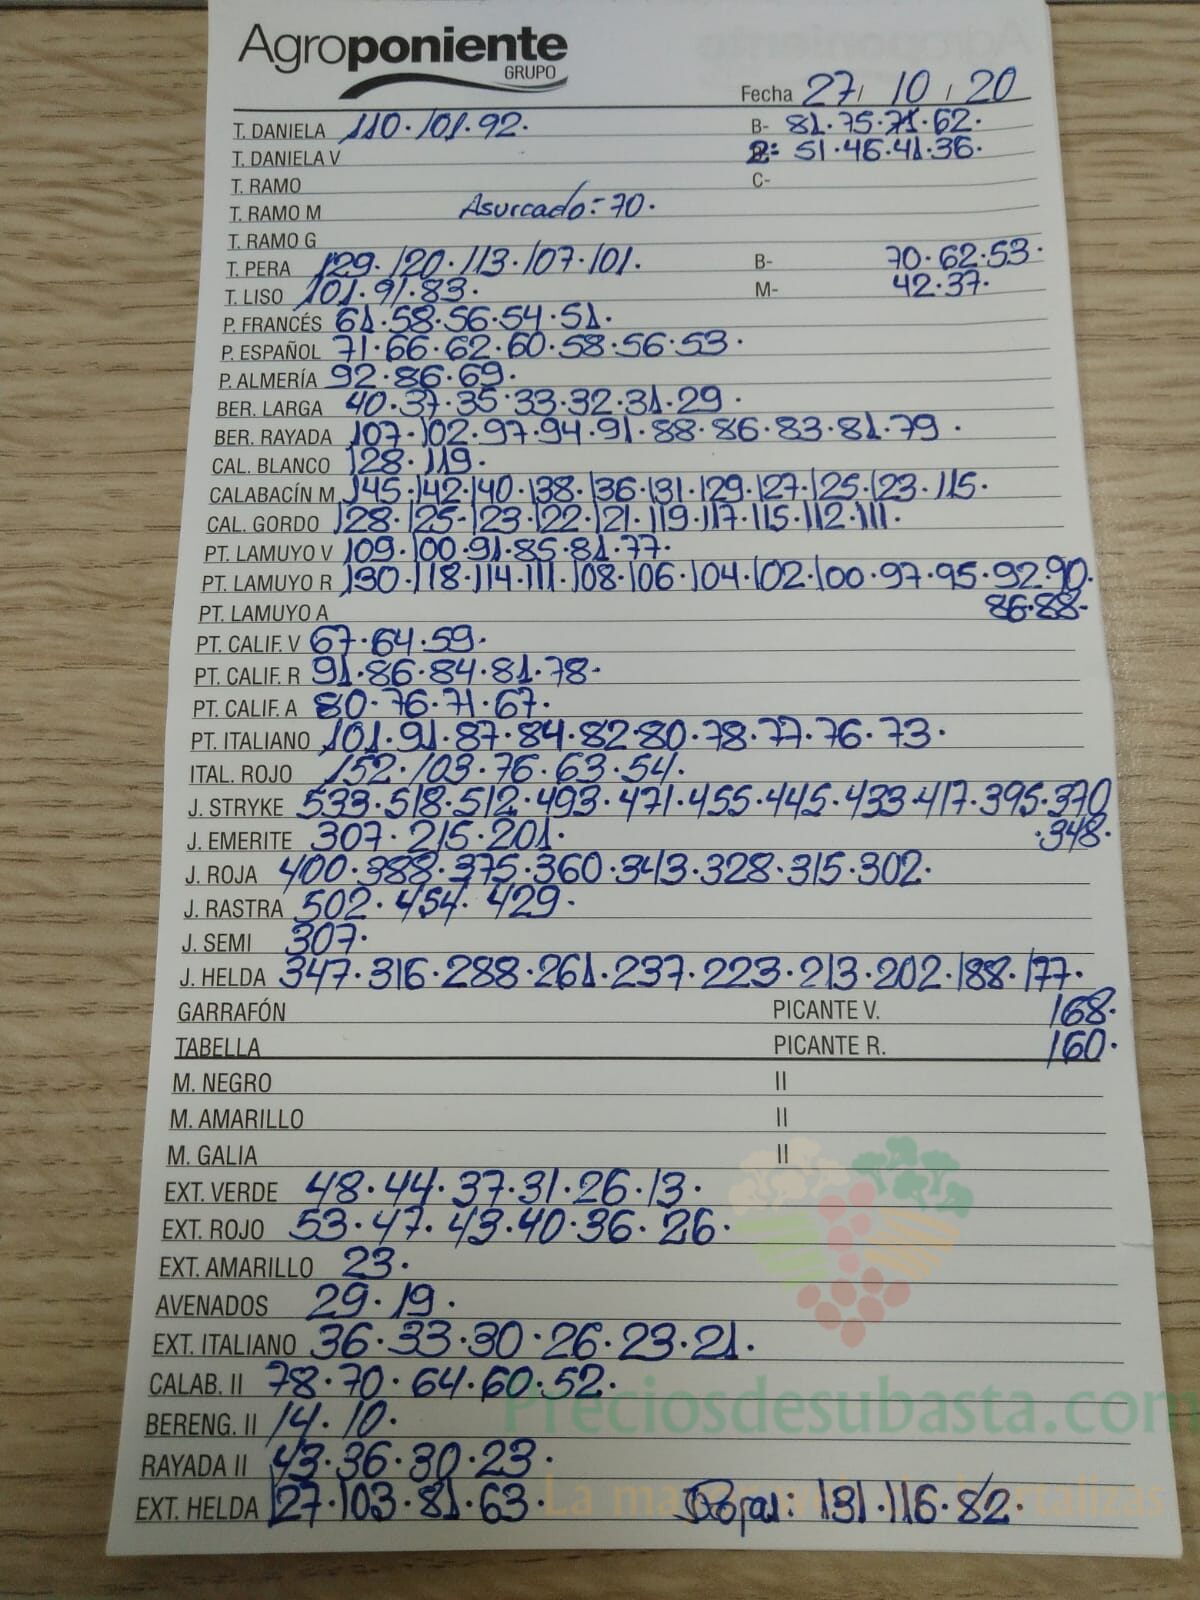 Agroponiente
GRUPO
Fecha 27/ 10 / 20
T. DANIELA 110·101·92· B- 81·75·71·62·
T. DANIELA V 2: 51·46·41·36·
T. RAMO C-
T. RAMO M Asurcado:-70·
T. RAMO G
T. PERA 129·120·113·107·101· B- 70·62·53·
T. LISO 101·91·83· M- 42·37·
P. FRANCÉS 61·58·56·54·51·
P. ESPAÑOL 71·66·62·60·58·56·53·
P. ALMERÍA 92·86·69·
BER. LARGA 40·37·35·33·32·31·29·
BER. RAYADA 107·102·97·94·91·88·86·83·81·79·
CAL. BLANCO 128·119·
CALABACÍN M 145·142·140·138·136·131·129·127·125·123·115·
CAL. GORDO 128·125-123·122·121·119·117·115·112·111·
PT. LAMUYO V 109·100·91·85·81·77·
PT. LAMUYO R 130·118·114·111·108·106·104·102·100·97·95·92·90·
PT. LAMUYO A 86·88-
PT. CALIF. V 67·64·59·
PT. CALIF. R 91·86·84·81·78·
PT. CALIF. A 80·76·71·67·
PT. ITALIANO 101·91·87·84·82·80·78·77·76·73·
ITAL. ROJO 152·103·76·63·54·
J. STRYKE 533·518·512·493·471·455·445·433·417·395·370
J. EMERITE 307·215·201· ·348·
J. ROJA 400·388·375·360·343·328·315·302·
J. RASTRA 502·454·429·
J. SEMI 307·
J. HELDA 347·316·288·261·237·223·213·202·188·177·
GARRAFÓN PICANTE V. 168·
TABELLA PICANTE R. 160·
M. NEGRO II
M. AMARILLO II
M. GALIA II
EXT. VERDE 48·44·37·31·26·13·
EXT. ROJO 53·47·43·40·36·26·
EXT. AMARILLO 23·
AVENADOS 29·19·
EXT. ITALIANO 36·33·30·26·23·21·
CALAB. II 78·70·64·60·52·
Preciosdesubasta.com
BERENG. II 14·10·
RAYADA II 43·36·30·23·
EXT. HELDA 127·103·81·63· 131·116·82·